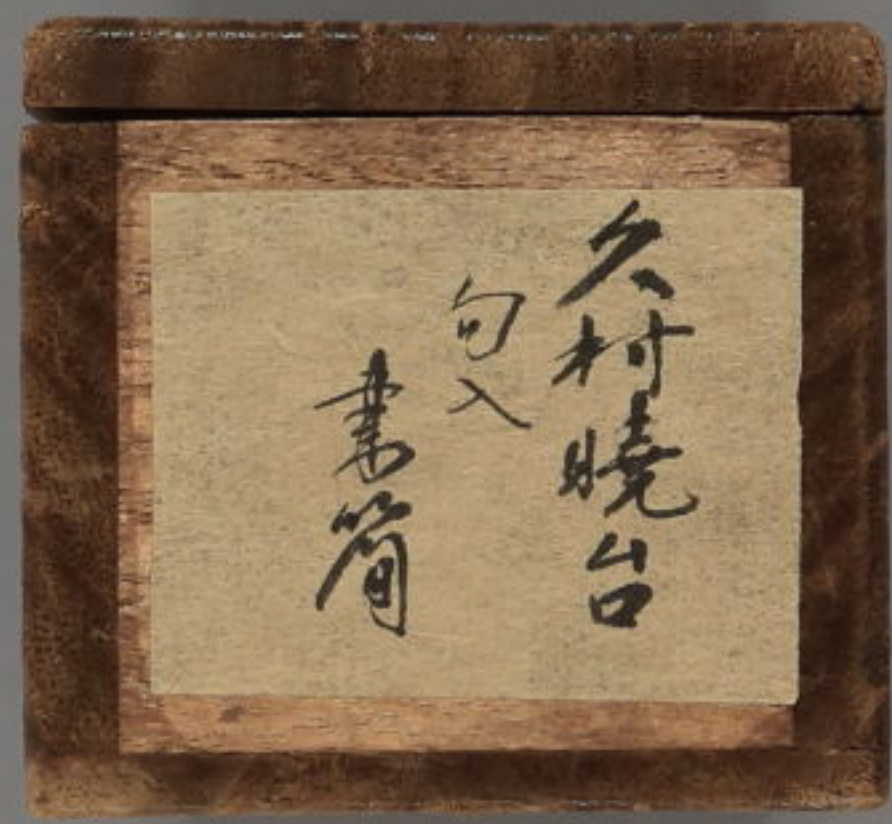 久村曉台
句入
書簡